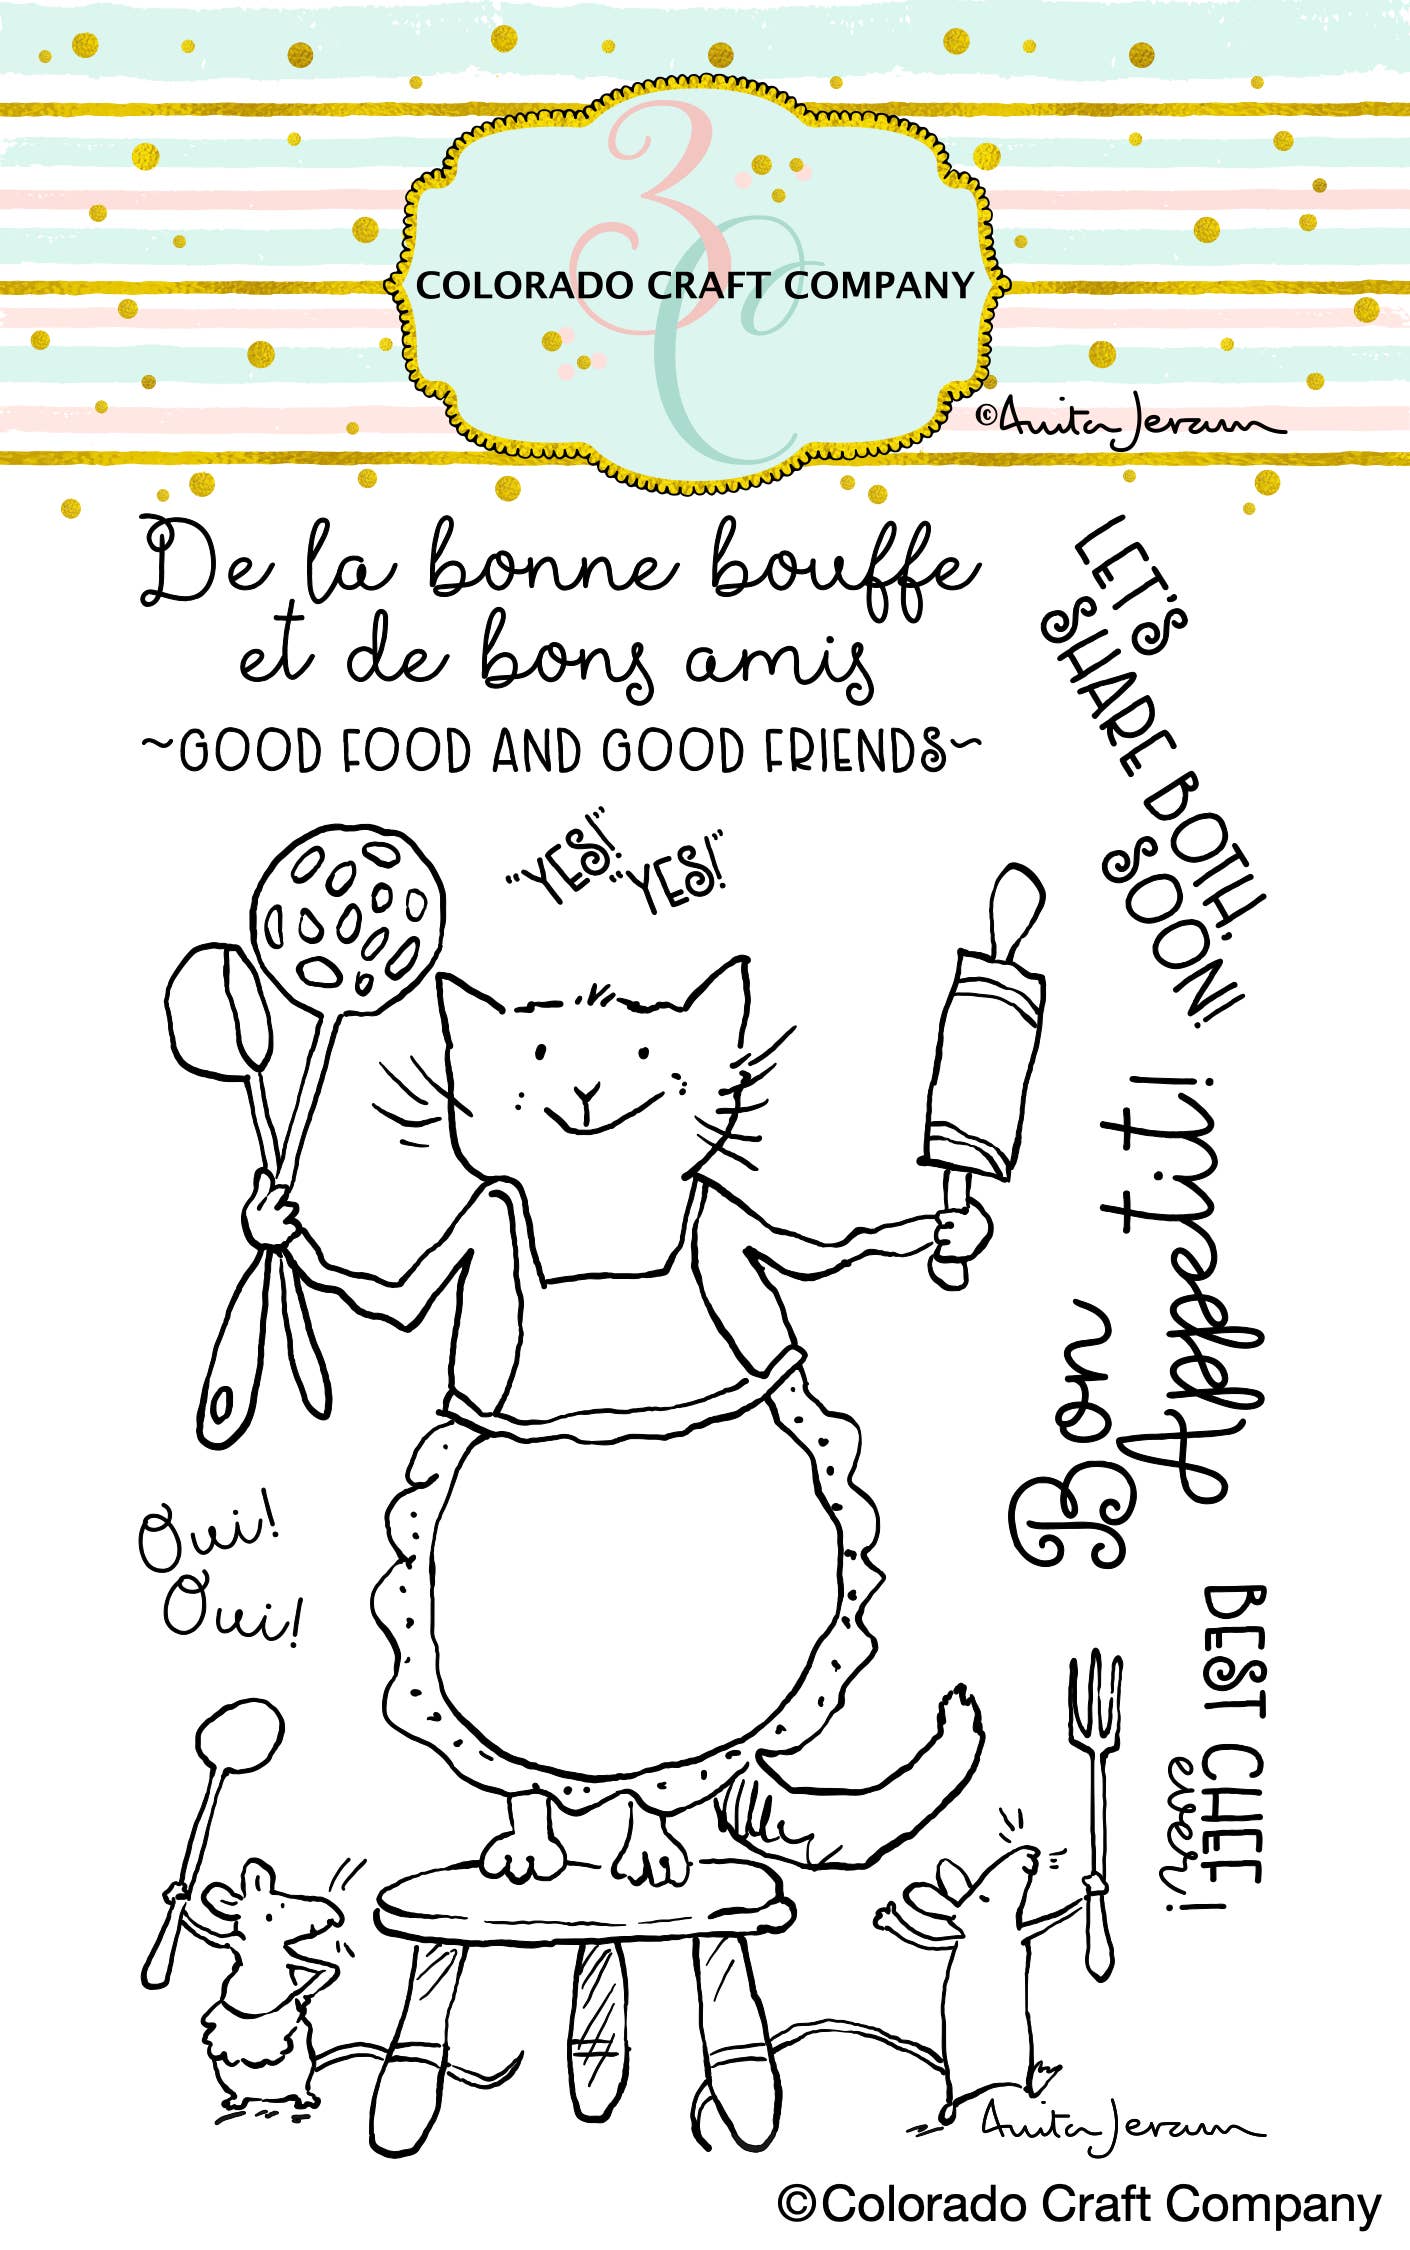 3C
COLORADO CRAFT COMPANY
©Anita Jeram
De la bonne bouffe
et de bons amis
~GOOD FOOD AND GOOD FRIENDS~
LET'S
SHARE BOTH,
SOON!!
"YES!"
"YES!"
Bon
Appetit!
Oui!
Oui!
BEST CHEF
ever!
Anita Jeram
©Colorado Craft Company